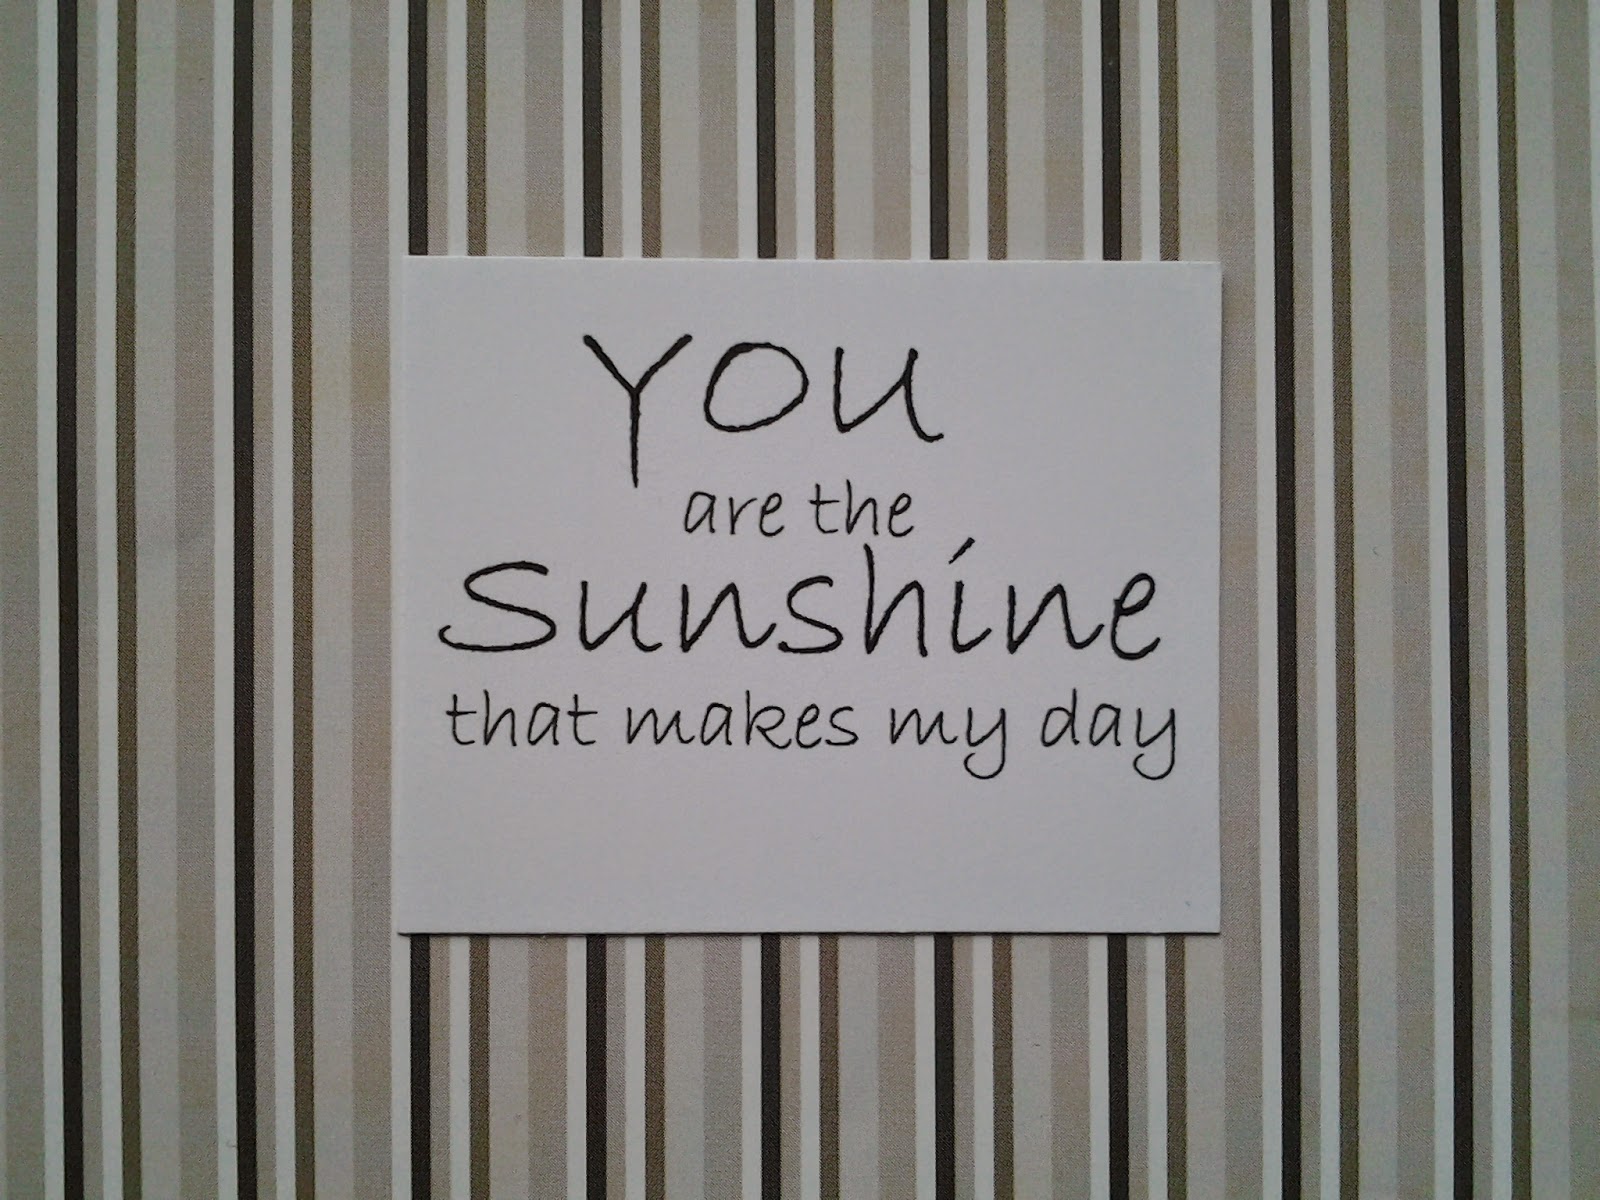 You
are the
Sunshine
that makes my day